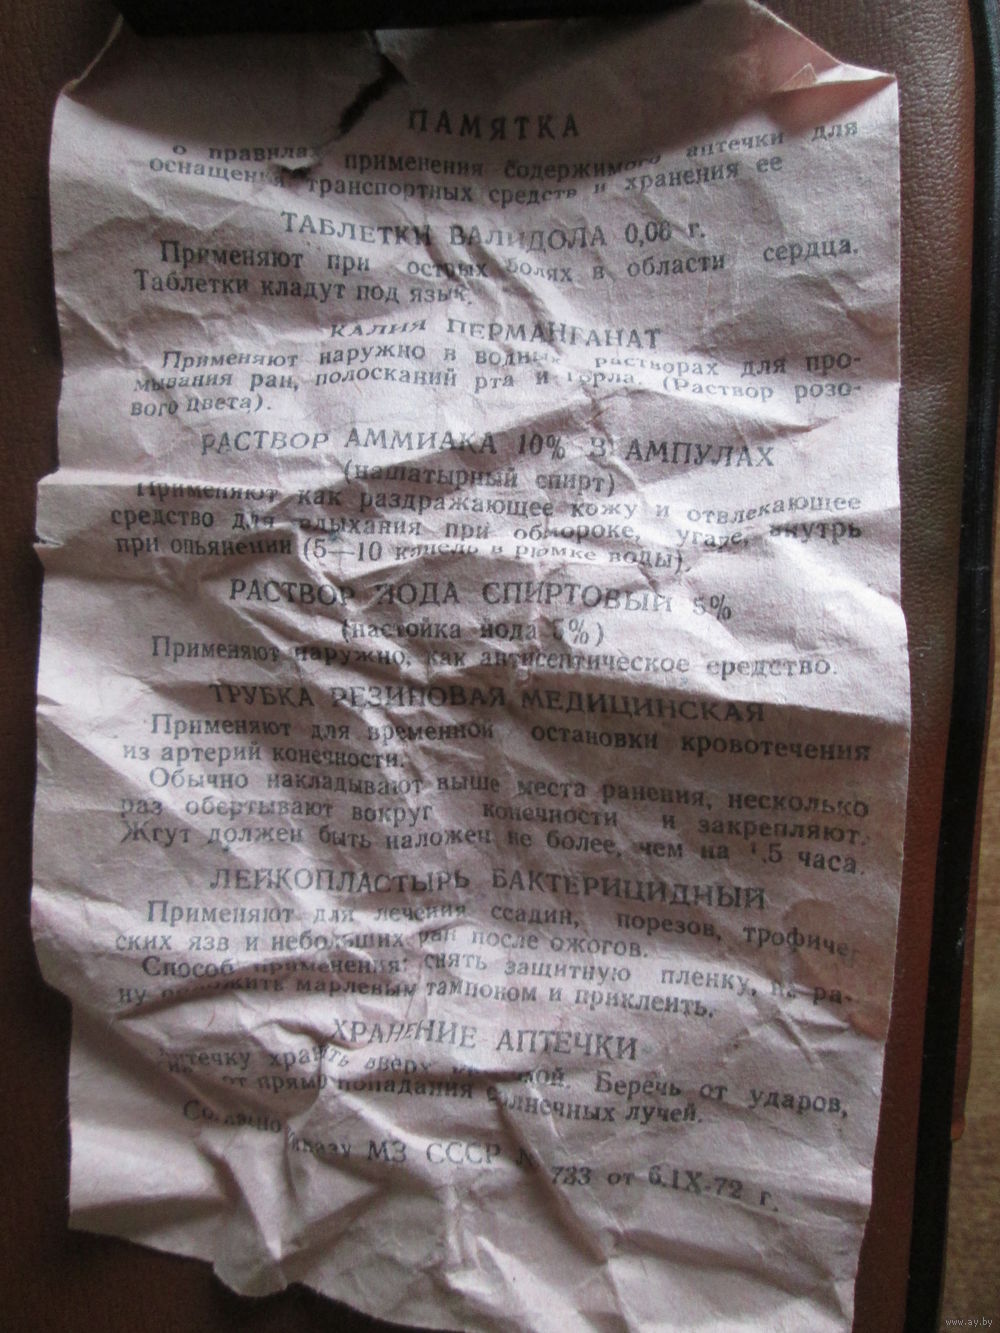 ПАМЯТКА
о правилах применения содержимого аптечки для
оснащения транспортных средств и хранения ее
ТАБЛЕТКИ ВАЛИДОЛА 0,06 г.
Применяют при острых болях в области сердца.
Таблетки кладут под язык.
КАЛИЯ ПЕРМАНГАНАТ
Применяют наружно в водных растворах для про-
мывания ран, полосканий рта и горла. (Раствор розо-
вого цвета).
РАСТВОР АММИАКА 10% В АМПУЛАХ
(нашатырный спирт)
Применяют как раздражающее кожу и отвлекающее
средство для вдыхания при обмороке, угаре, внутрь
при опьянении (5—10 капель в рюмке воды).
РАСТВОР ЙОДА СПИРТОВЫЙ 5%
(настойка йода 5%)
Применяют наружно, как антисептическое средство.
ТРУБКА РЕЗИНОВАЯ МЕДИЦИНСКАЯ
Применяют для временной остановки кровотечения
из артерий конечности.
Обычно накладывают выше места ранения, несколько
раз обертывают вокруг конечности и закрепляют.
Жгут должен быть наложен не более, чем на 1,5 часа.
ЛЕЙКОПЛАСТЫРЬ БАКТЕРИЦИДНЫЙ
Применяют для лечения ссадин, порезов, трофиче-
ских язв и небольших ран после ожогов.
Способ применения: снять защитную пленку, на ра-
ну положить марлевым тампоном и приклеить.
ХРАНЕНИЕ АПТЕЧКИ
Аптечку хранить вверх крышкой. Беречь от ударов,
от прямо попадания солнечных лучей.
Согласно приказу МЗ СССР № 733 от 6.IX-72 г.
www.ay.by